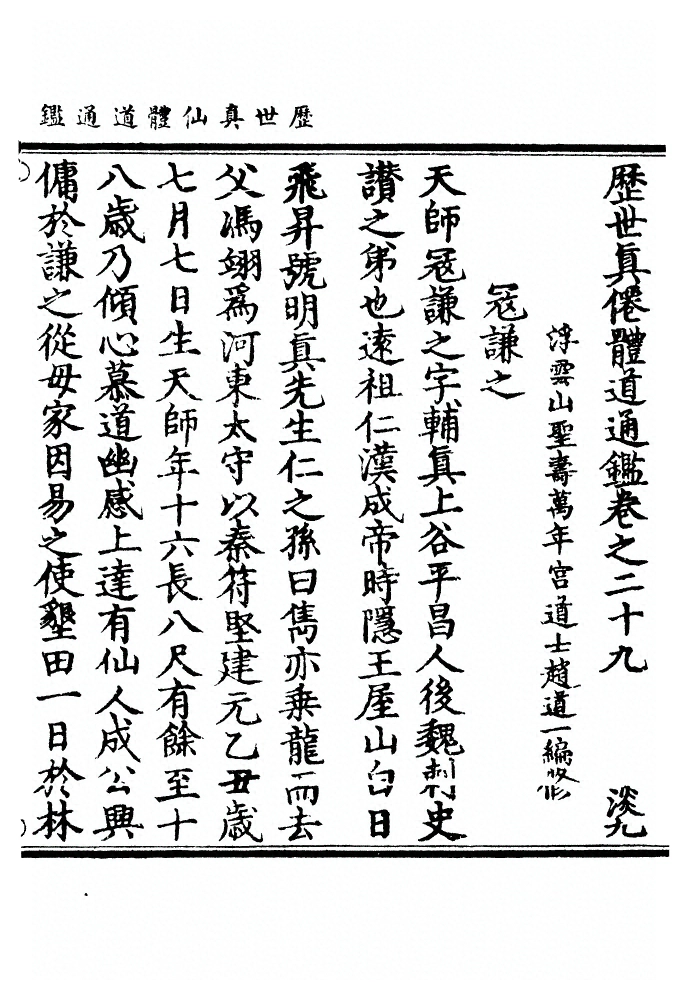 歷世真仙體道通鑑
歷世真僊體道通鑑卷之二十九 淡九
浮雲山聖壽萬年宮道士趙道一編修
冦謙之
天師冦謙之字輔真上谷平昌人後魏刺史
讃之弟也遠祖仁漢成帝時隱王屋山白日
飛昇號明真先生仁之孫曰雋亦乗龍而去
父馮翊爲河東太守以秦符堅建元乙丑歲
七月七日生天師年十六長八尺有餘至十
八歲乃傾心慕道幽感上達有仙人成公興
傭於謙之從母家因易之使墾田一日於林